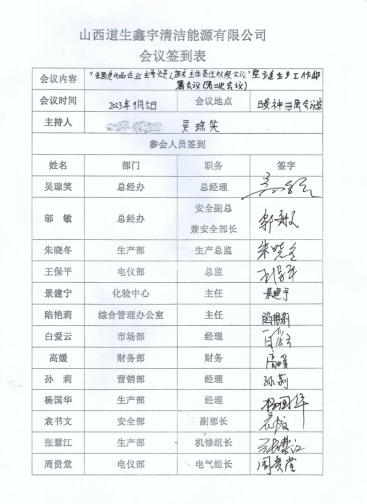 山西道生鑫宇清洁能源有限公司
会议签到表
会议内容 《全国危化品企业主要负责人 主体责任 视频会议》 安全生产工作部署会议（第一次会议）
会议时间 2023年1月5日 会议地点 三层会议室
主持人 吴琼笑
参会人员签到
姓名 部门 职务 签字
吴琼笑 总经办 总经理
邬 敏 总经办 安全副总兼安全部长 邬敏
朱晓冬 生产部 生产总监 朱晓冬
王保平 电仪部 总监 王保平
景建宁 化验中心 主任 景建宁
陷艳莉 综合管理办公室 主任 陷艳莉
白爱云 市场部 经理 白爱云
高媛 财务部 财务 高媛
孙 莉 营销部 经理 孙莉
杨国华 生产部 经理 杨国华
袁书文 安全部 副部长 袁书文
张慧江 生产部 机修组长 张慧江
周贵堂 电仪部 电气组长 周贵堂